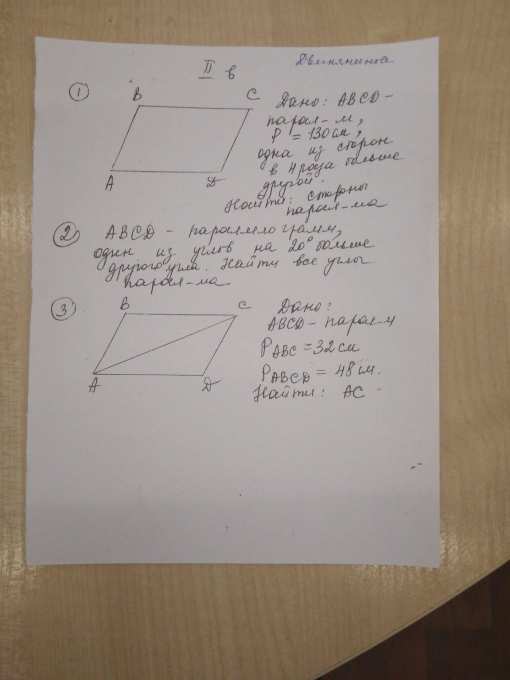 II в
① B C Дано: ABCD -
парал-м,
P = 130 см,
одна из сторон
в 4 раза больше
другой.
A D
Найти: стороны
парал-ма
② ABCD - параллелограмм,
один из углов на 20° больше
другого угла. Найти все углы
парал-ма
③ B C Дано:
ABCD - парал-м
P ABC = 32 см
P ABCD = 48 см.
A D
Найти: AC